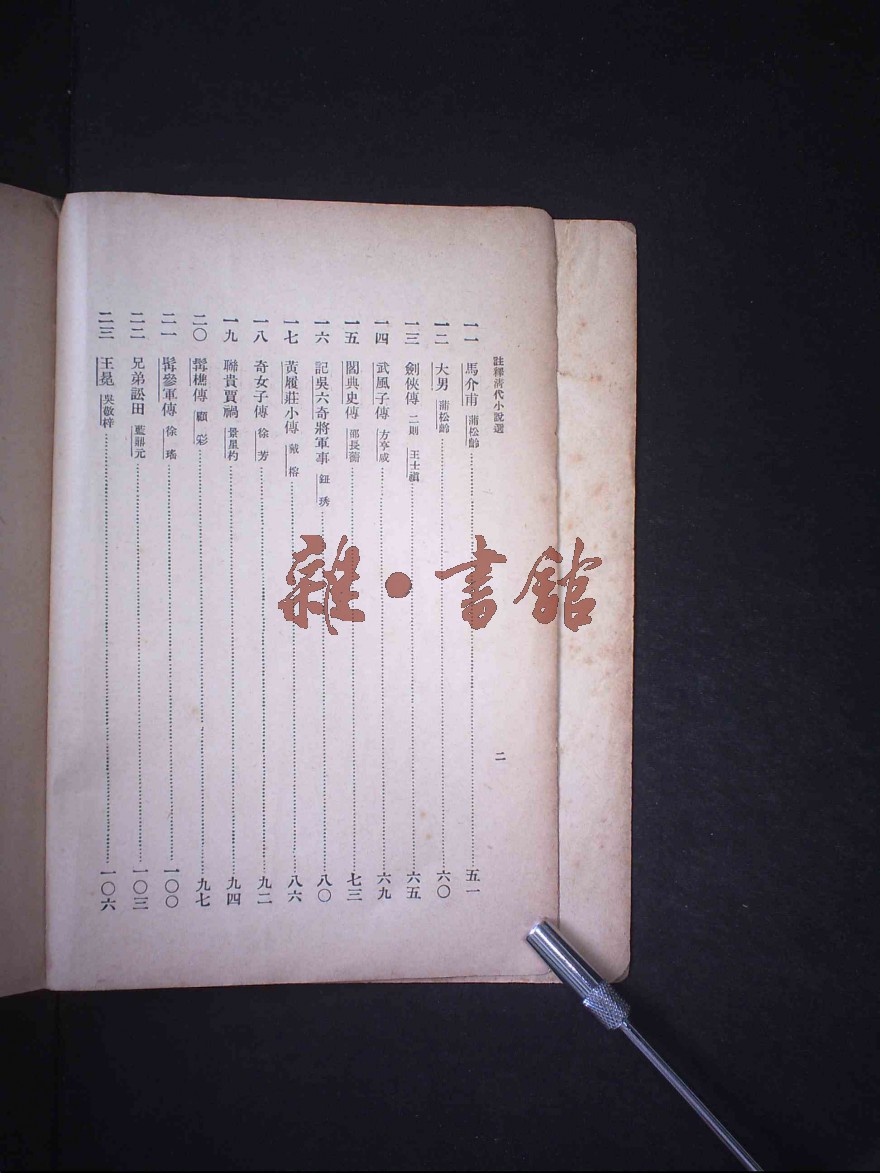 註釋清代小說選
一一 馬介甫 蒲松齡 五一
一二 大男 蒲松齡 六〇
一三 劍俠傳 二則 王士禛 六五
一四 武風子傳 方亨咸 六九
一五 閻典史傳 邵長蘅 七三
一六 記吳六奇將軍事 鈕琇 八〇
一七 黃履莊小傳 戴榕 八六
一八 奇女子傳 徐芳 九二
一九 聯貴賈禍 景星杓 九四
二〇 髯樵傳 顧彩 九七
二一 髯參軍傳 徐瑤 一〇〇
二二 兄弟訟田 藍鼎元 一〇三
二三 王冕 吳敬梓 一〇六
二
雜·書館